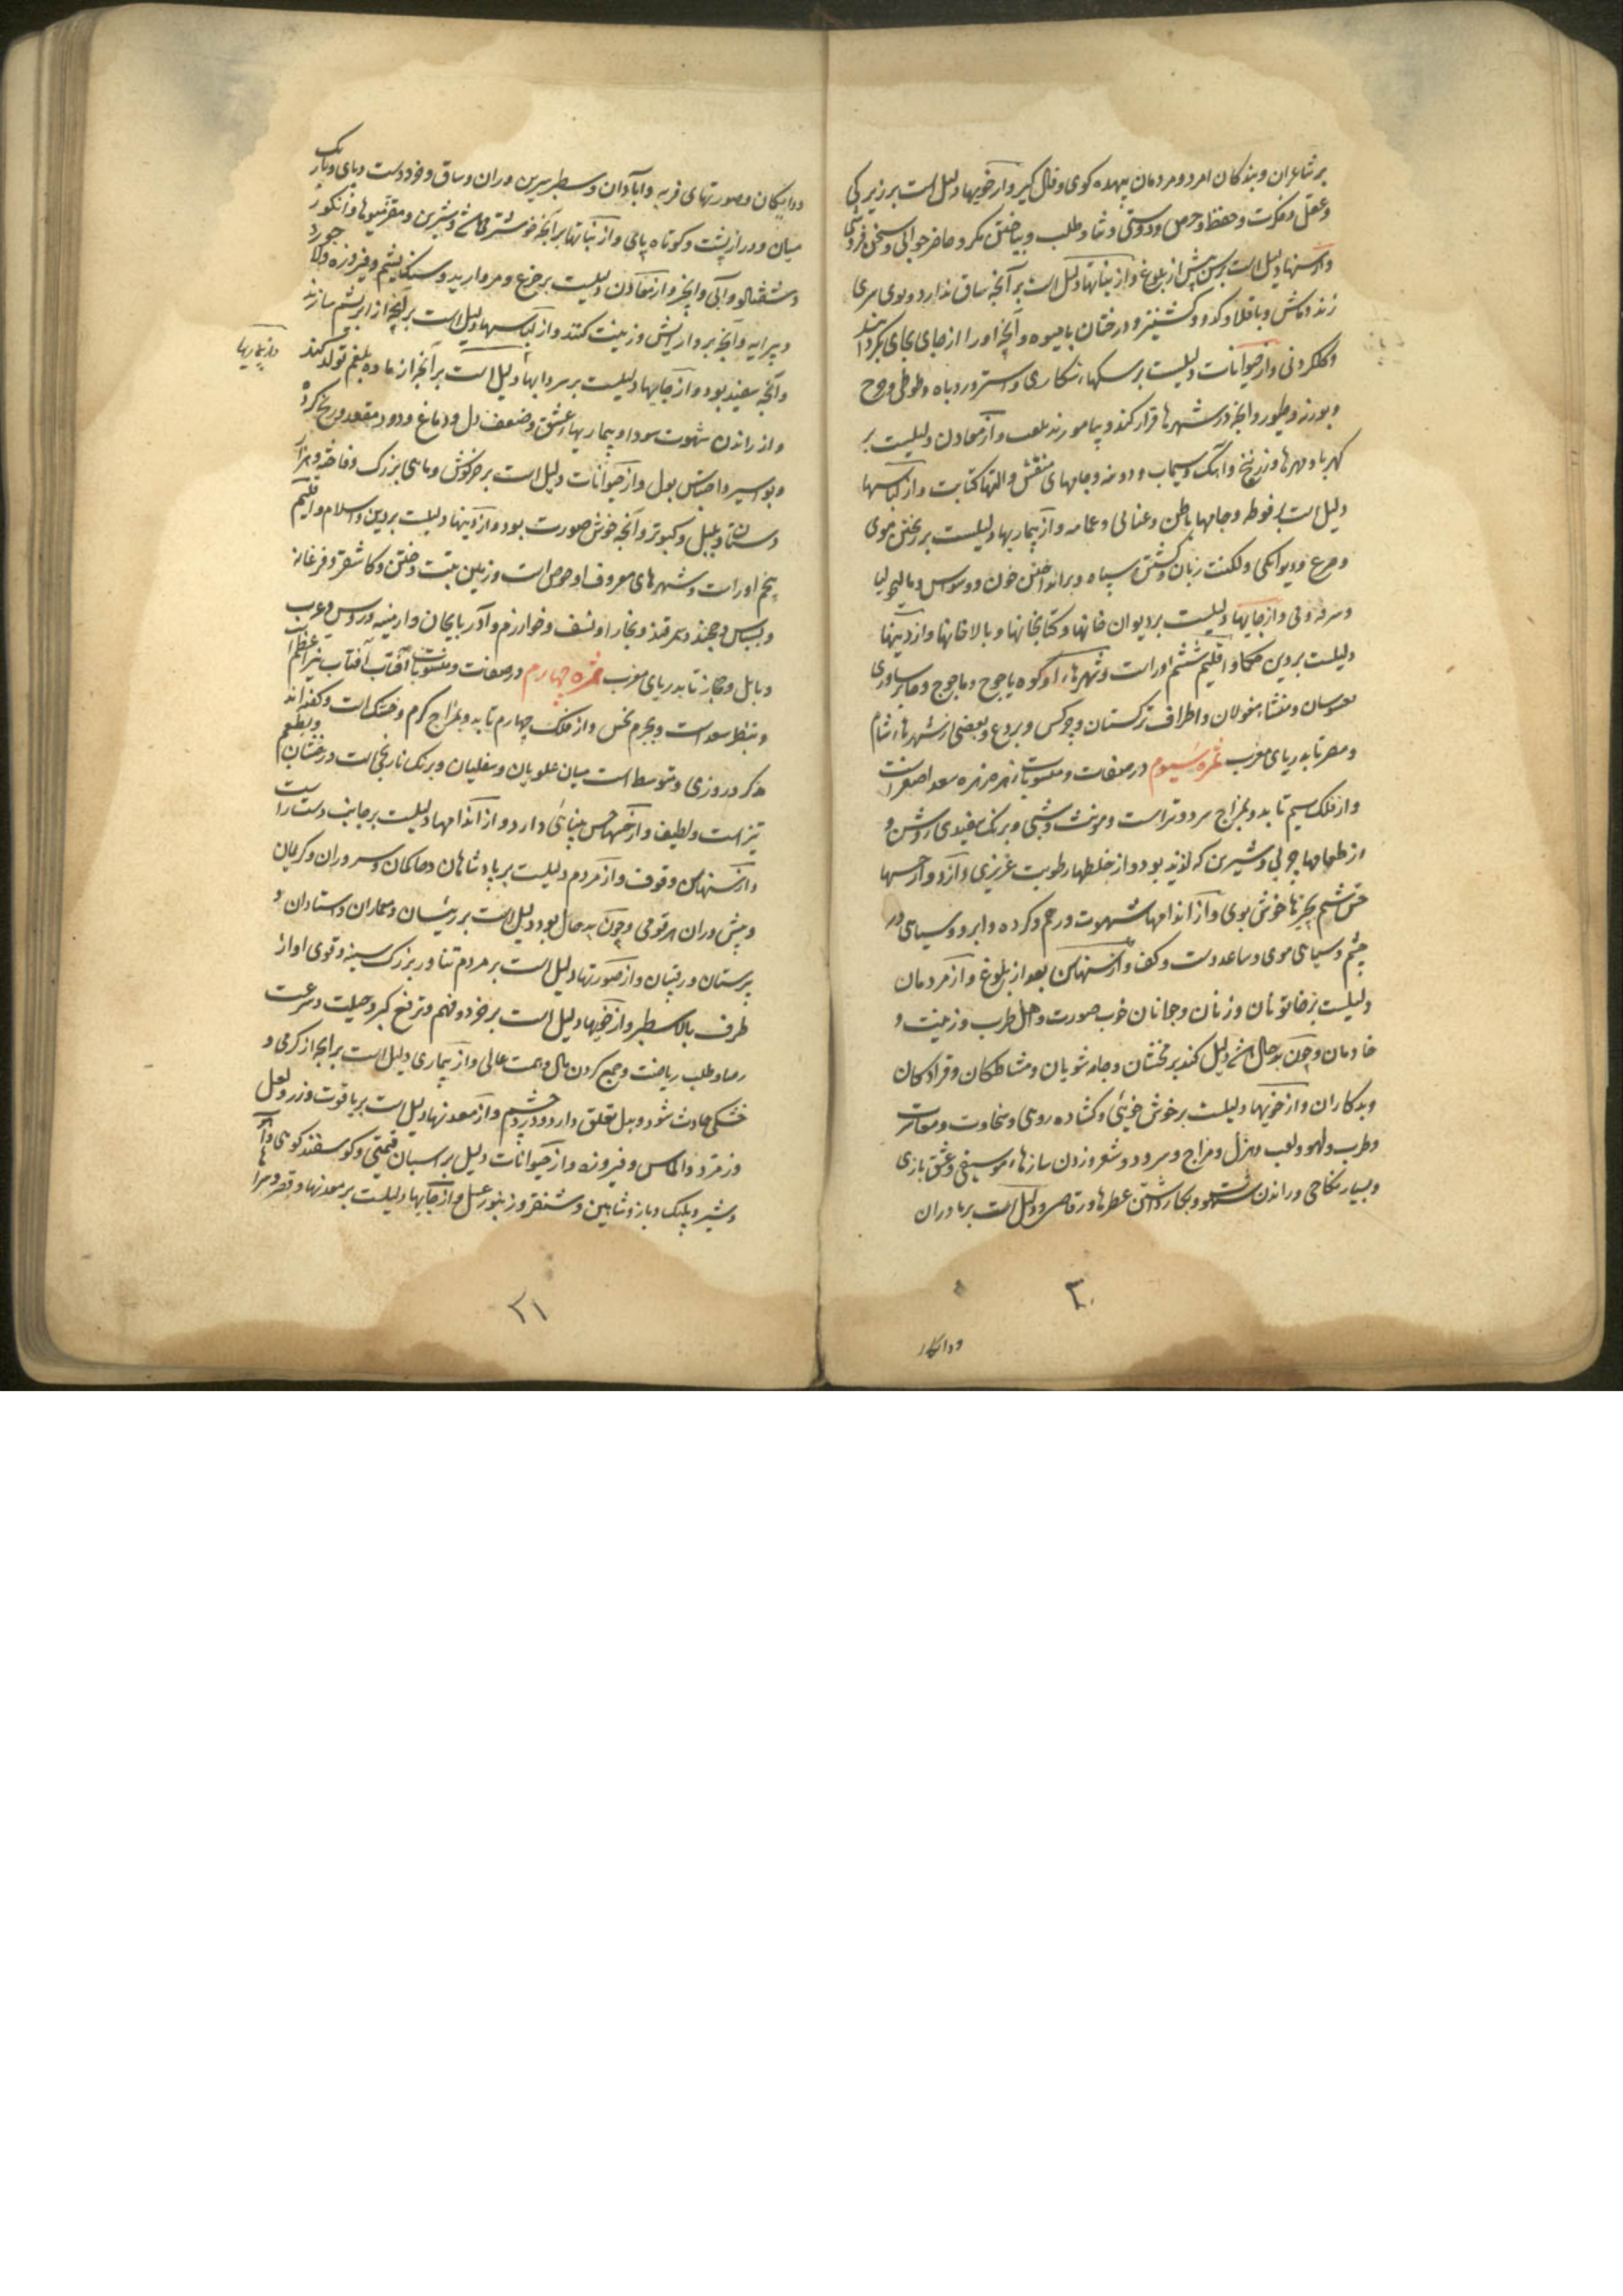 بر شاعران و بندکان امرد و مردمان بیهده کوی و فال کیر و از خویها دلیل است بر زیرکی
و عقل و فکرت و حفظ و حرص و دوستی و طلب و مکر و حاضر جوابی و سخن فروشی
و از سنها دلیل است بر سن پیش از بلوغ و از نباتها دلیل است بر آنچه ساق ندارد و بوی
و ماش و باقلا و کدو و کشنیز و درختان بامیوه و آنچه او را از جای بجای
و از حیوانات دلیلست بر سکهاء شکاری و استر و روباه و طوطی و
و بوزنه و طیور و آنچه در شهرها قرار کند و بیاموزند بلعب و از معادن دلیلیست بر
کهربا و مهرها و زرنیخ و سیماب و جامهای منقش و التها کتابت و از لباسها
دلیل است بر فوطه و جامها باطن و عنابی و عمامه و از بیماریها دلیلست بر ریختن موی
و صرع و دیوانکی و لکنت زبان و برانداختن خون و وسواس و مالیخولیا
و سرفه و قی و از جایها دلیلیست بر دیوان خانها و کتابخانها و بالاخانها و از دینها
دلیلست بر دین حکما و اقلیم ششم او راست و شهرهاء او کوه یاجوج و ماجوج و
و منشاء مغولان و اطراف ترکستان و چرکس و بردع و بعضی از شهرهاء شام
و مصر تا بدریای مغرب ثمره سیوم در صفات و منسوبات زهره زهره سعد اصغر است
و از فلک سیم تابد و بمزاج سرد و تر است و مونث و شبی و برنک سفیدی روشن و
از طعامها چربی و شیرین که لذیذ بود و از خلطها رطوبت غریزی دارد و از حسها
حس شم بچیزها خوش بوی و از اندامها شهوت و رحم و کرده و ابرو و سیاهی در
چشم و سیاهی موی و ساعد دست و کف و از سنها سن بعد از بلوغ و از مردمان
دلیلیست بر خاتونان و زنان و جوانان خوب صورت و اهل طرب و زینت و
خادمان و چون بدحال باشد دلیل کند بر مخنثان و جامه شویان و مشاطکان و قوادکان
و بدکاران و از خویها دلیلست بر خوش خویئی و کشاده روی و سخاوت و معاشرت
و طرب و لهو و لعب و هزل و مزاح و سرود و شعر و زدن سازهاء موسیقی و عشق بازی
و بسیار نکاحی و راندن شهوت و بکار داشتن عطرها و رقاصی و دلیل است بر مادران
۳۰
و دایکان
و دایکان و صورتهای فربه و سطبر سرین و ران و ساق و خرد دست و پای و باریک
میان و دراز پشت و کوتاه پای و از نباتها بر آنچه خوشتر باشد و شیرین و انکور
و شفتالو و آبی و انجیر و از معادن دلیلیست بر جزع و مروارید و سنک یشم و فیروزه و
و پیرایه و آنچه بر و ارایش و زینت کنند و از لباسها دلیل است بر آنچه از ابریشم سازند
و آنچه سفید بود و از جایها دلیلیست بر سردابها دلیل است بر آنچه از ماده بلغم تولد کند
و از بیماریها
و از راندن شهوت سودا و بیماریهاء عشق و ضعف دل و دماغ و درد مقعد و رنج کرده
و بواسیر و احتباس بول و از حیوانات دلیل است بر خرکوش و ماهی بزرک و فاخته و هزار
دستان و بلبل و کبوتر و آنچه خوش صورت بود و از دینها دلیلیست بر دین اسلام و اقلیم
پنجم او راست و شهرهای معروف او است و زمین تبت و ختن و کاشغر و فرغانه
و خجند و سمرقند و بخارا و نسف و خوارزم و آذربایجان و ارمینیه و روس و عرب
و بابل و حجاز تا بدریای مغرب ثمره چهارم در صفات و منسوبات آفتاب آفتاب نیر اعظم است
و بنظر سعد است و بجرم نحس و از فلک چهارم تابد و بمزاج کرم و خشک است و کفته اند
مذکر و روزی و متوسط است میان علویان و سفلیان و برنک نارنجی است درخشان و بطعم
تیز است و لطیف و از حسها حس بینائی دارد و از اندامها دلیلیست بر جانب دست راست
و از سنها سن وقوف و از مردم دلیلیست بر پادشاهان و حاکمان و سروران و کریمان
و پیش وران هر قومی و چون بدحال بود دلیل است بر رئیسان و معماران و استادان و
پرستان و رقیبان و از صورتها دلیل است بر مردم تناور بزرک سینه و قوی اواز
طرف بالا سطبر و از خویها دلیل است بر خرد و فهم و ترفع کبر و حیلت و سرعت
رضا و طلب ریاضت و جمع کردن مال و همت عالی و از بیماری دلیل است بر آنچه از کرمی و
خشکی حادث شود و بدل تعلق دارد و درد چشم و از معدنها دلیل است بر یاقوت و زر و لعل
و زمرد و الماس و فیروزه و از حیوانات دلیل بر اسبان قیمتی و کوسفند کوهی و آهو
و شیر و پلنک و باز و شاهین و شنقر و زنبور عسل و از جایها دلیلیست بر معدنها و قصر و سرا
۳۱